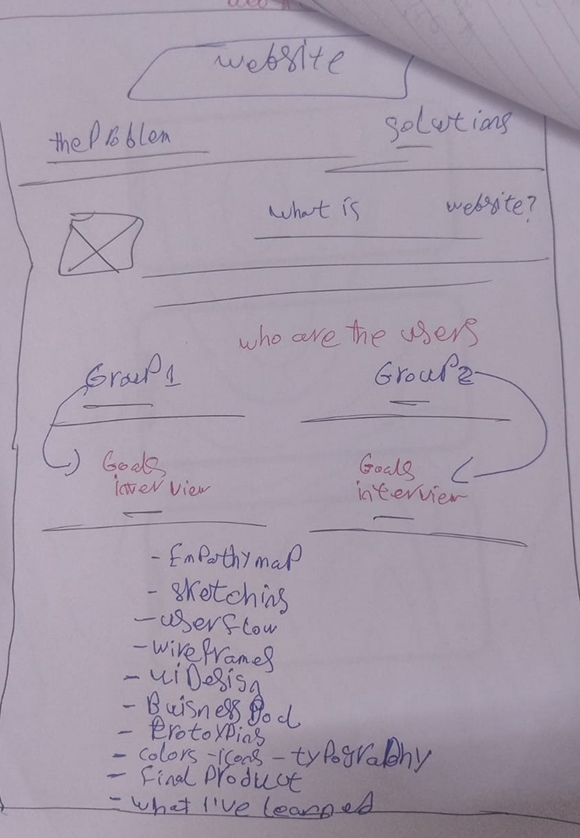 website
the Problem
solutions
what is website?
who are the users
Group 1
Group 2
Goals
interview
Goals
interview
- Empathy map
- sketching
- userflow
- wireframes
- ui Design
- Buisness
- Prototyping
- colors - icons - typography
- final product
- what I've learned